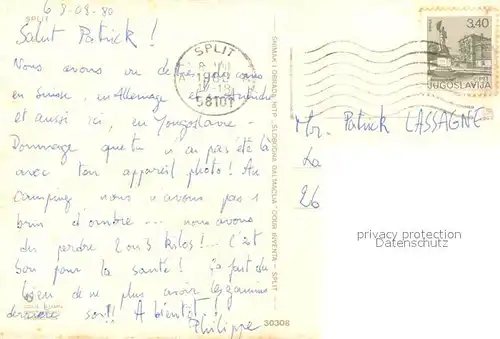 6 8-08-80
SPLIT
Salut Patrick !
Nous avons vu de belles
en Suisse, en Allemagne et
et aussi ici, en Yougoslavie.
Dommage que tu n'ai pas été là
avec ton appareil photo ! Au
camping nous n'avons pas 1
brin d'ombre ... nous avons
du perdre 2 ou 3 kilos !... C'est
bon pour la santé ! Ça fait du
bien de ne plus avoir les gamins
derrière soi !! A bientôt !
Philippe
SPLIT
17-18
58101
SNIMAK I OBRADA NTP „SLOBODNA DALMACIJA" OOUR INVENTA - SPLIT
30308
3,40
JUGOSLAVIJA
Mr. Patrick LASSAGNE
La
26
privacy protection
Datenschutz